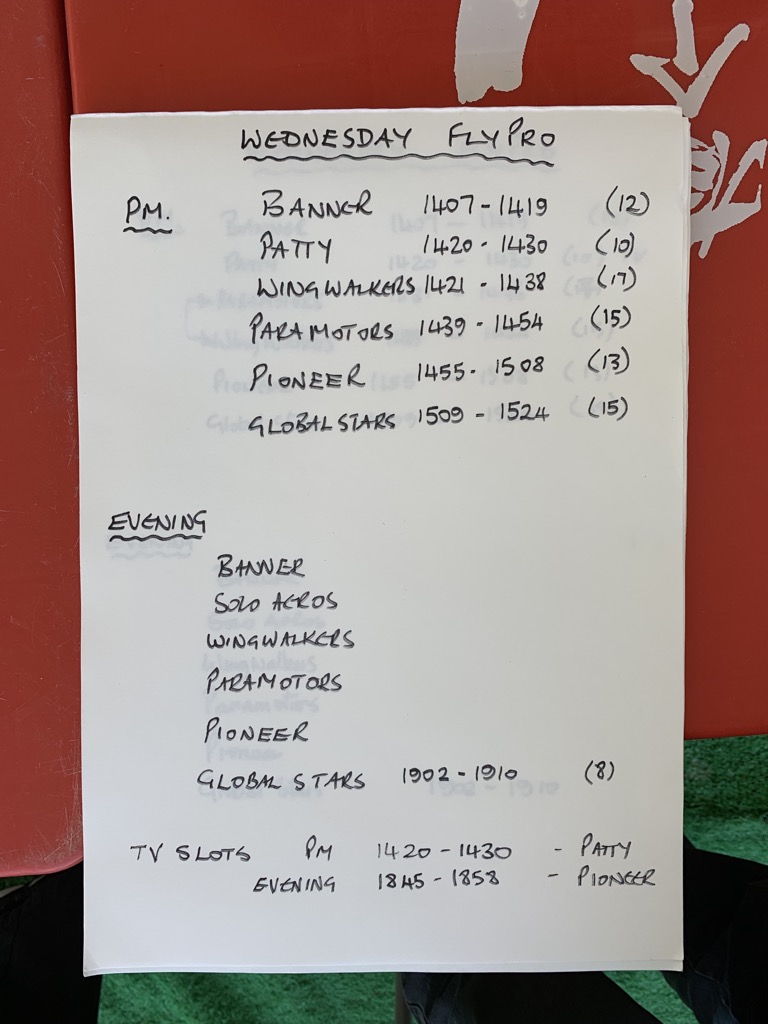 WEDNESDAY FLYPRO
PM. BANNER 1407 - 1419 (12)
PATTY 1420 - 1430 (10)
WINGWALKERS 1421 - 1438 (17)
PARAMOTORS 1439 - 1454 (15)
PIONEER 1455 - 1508 (13)
GLOBALSTARS 1509 - 1524 (15)
EVENING
BANNER
SOLO AEROS
WINGWALKERS
PARAMOTORS
PIONEER
GLOBAL STARS 1902 - 1910 (8)
TV SLOTS PM 1420 - 1430 - PATTY
EVENING 1845 - 1858 - PIONEER